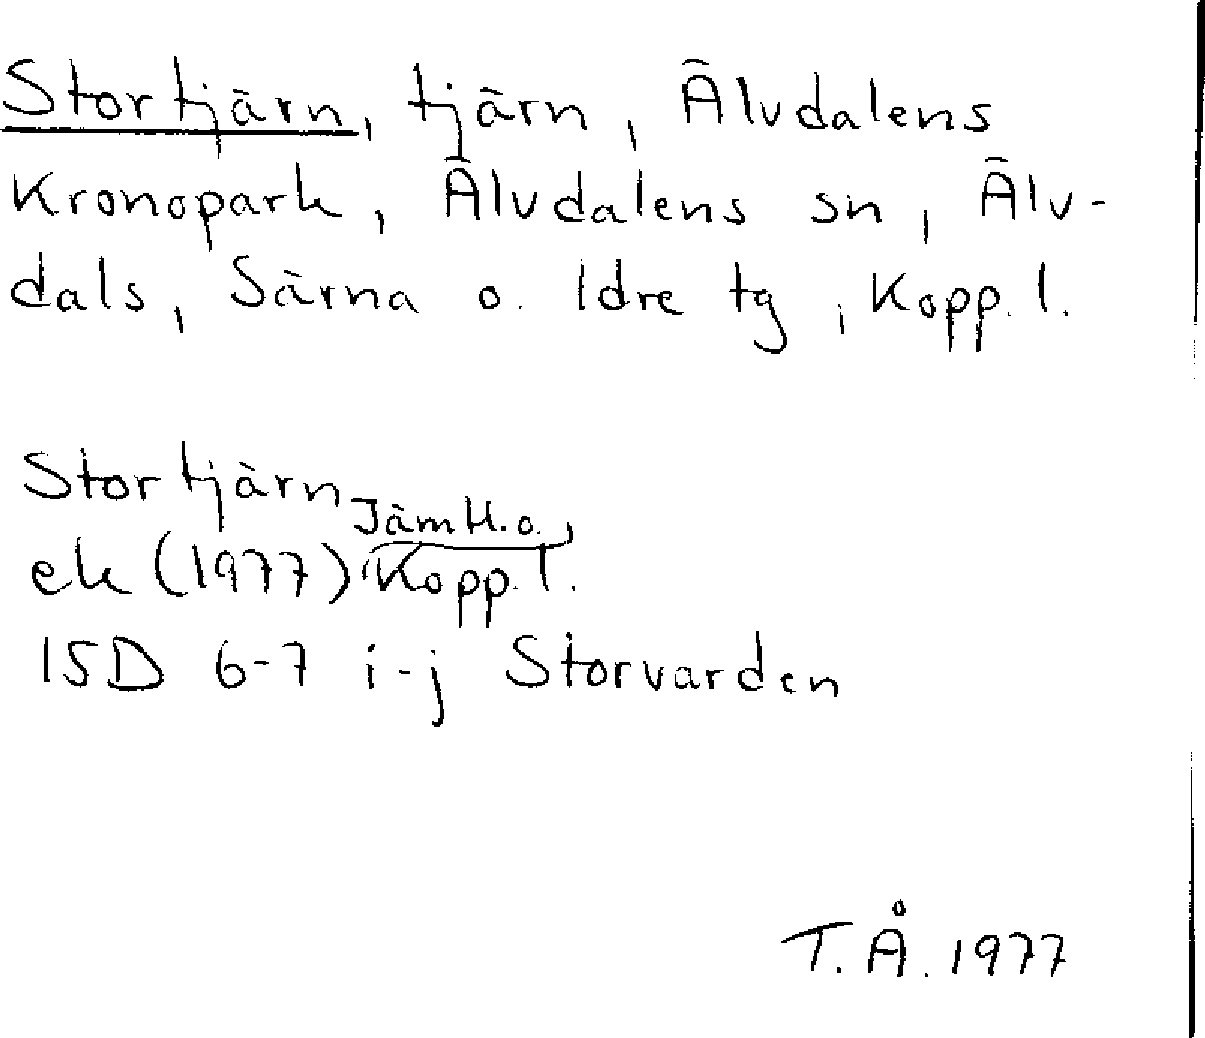 Stortjärn, tjärn, Älvdalens
Kronopark, Älvdalens sn, Älv-
dals, Särna o. Idre tg, Kopp. l.
Stortjärn
Jämtl. o.
ek (1977) Kopp. l.
15D 6-7 i-j Storvarden
T.Å. 1977